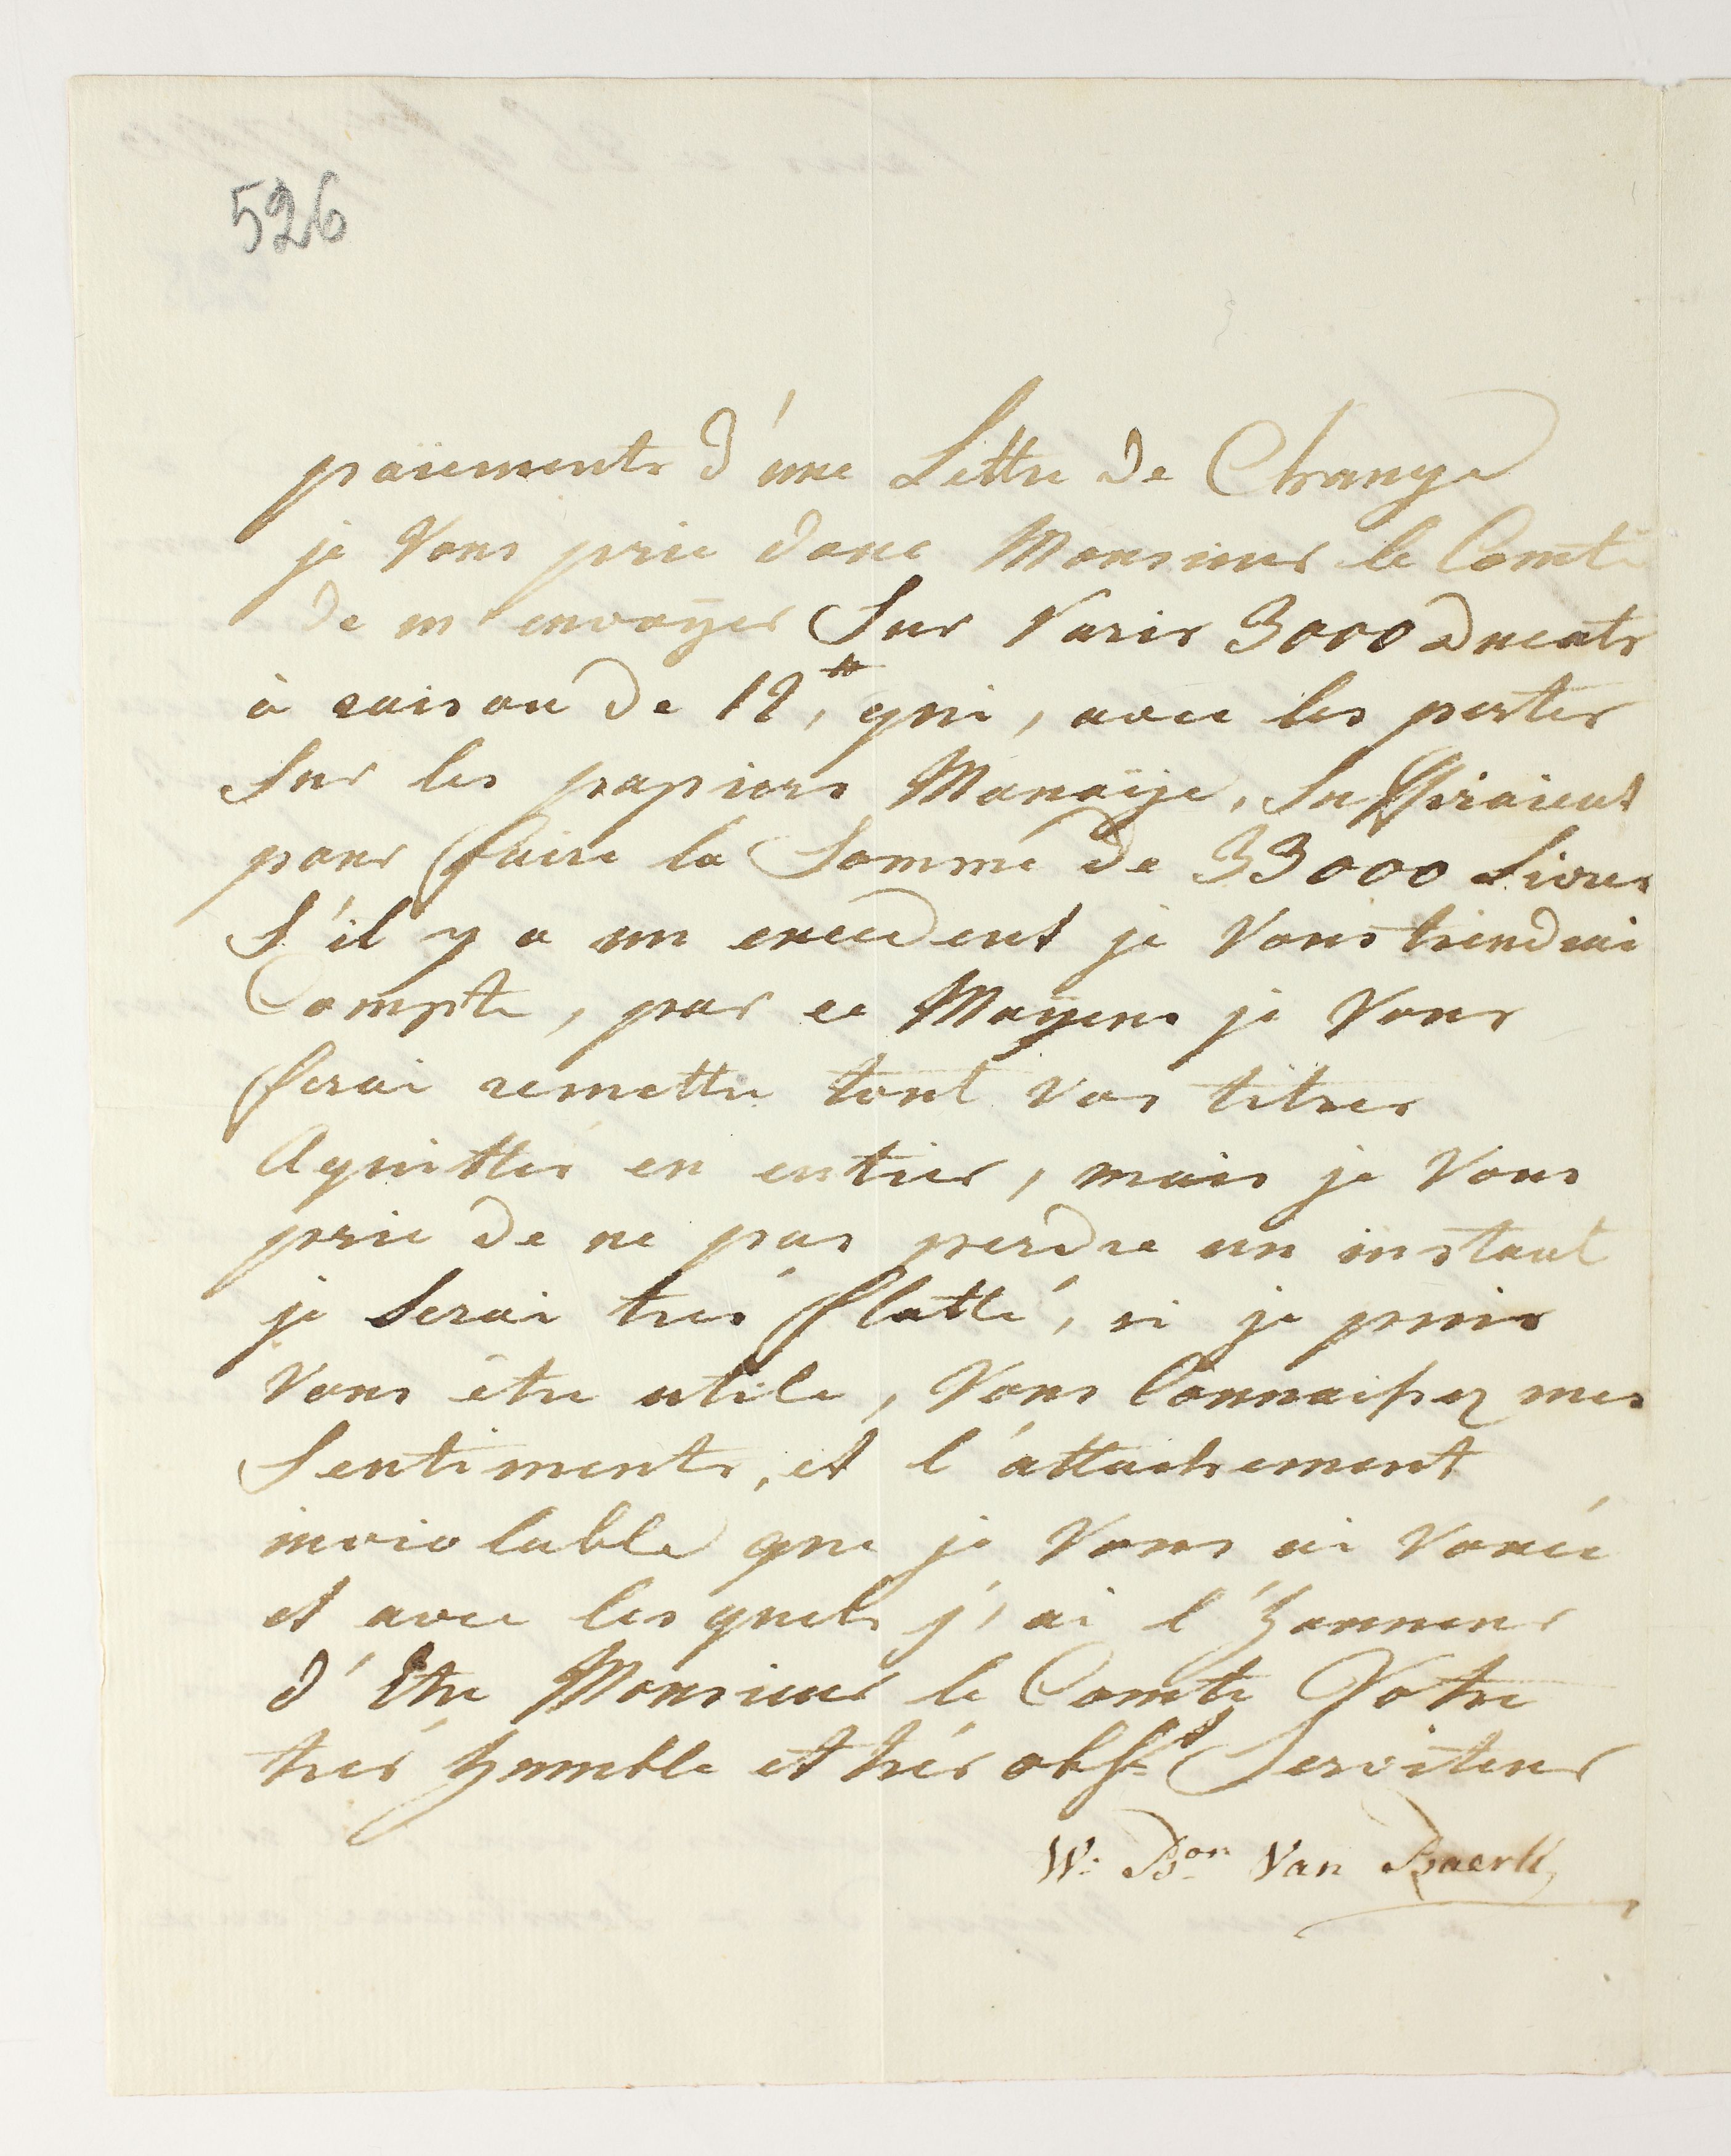 526
paiements d'une Lettre de Change
je Vous prie donc Monsieur le Comte
de m'envoÿer Sur Paris 3000 ducats
à raison de 12₶, qui, avec les pertes
Sur les papiers Monoÿe, Suffiraient
pour faire la Somme de 33000 Livres
S'il y a un exceedent je Vous tiendrai
Compte, par ce Moÿens je Vous
ferai remettre tout vos titres
Aquittés en entier, mais je Vous
prie de ne pas perdre un instant
je Serai trés flatté, si je puis
Vous être utile, Vous Connaissez mes
Sentiments, et l'attachement
inviolable que je Vous ai Vouée
et avec lesquels j'ai l'honneur
d'Etre Monsieur le Comte Votre
trés humble et trés obst Serviteur
W: Bon Van